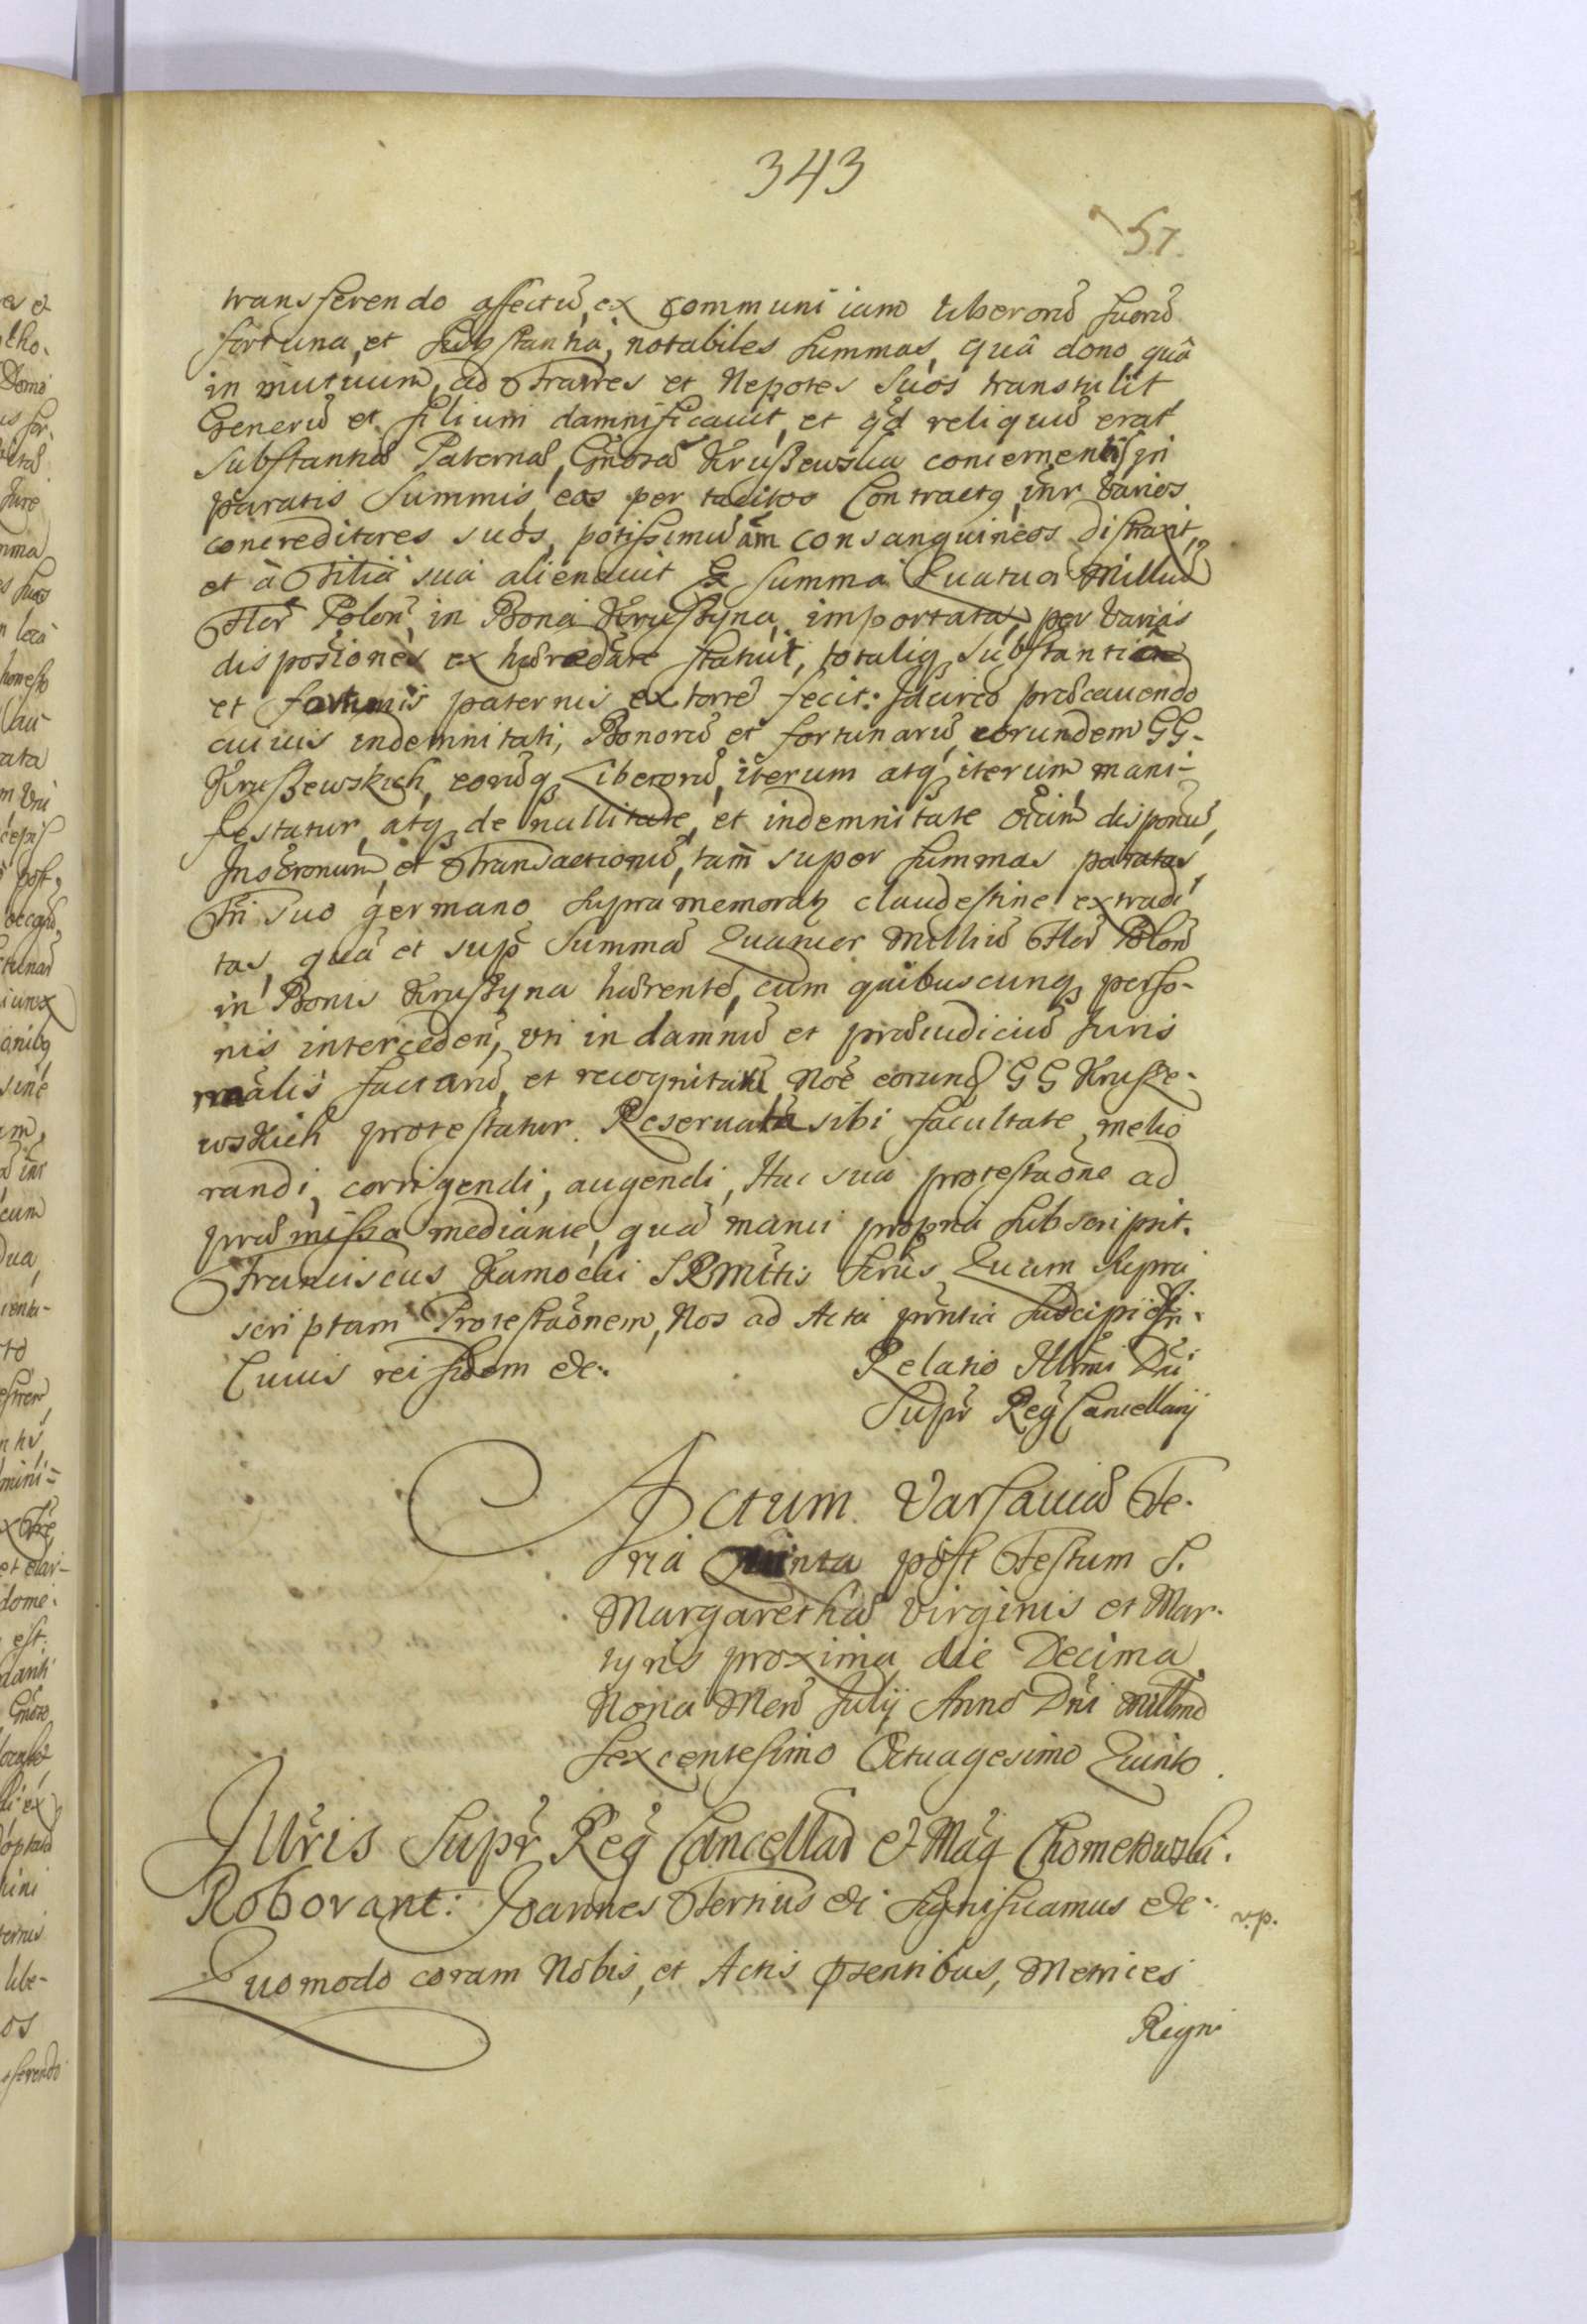 343
57.
transferendo affectũ, ex communi iam liberorũ suorũ
fortuna, et substantia, notabiles summas, quâ dono quâ
in mutuum, ad Fratres et Nepotes suos transtulit
Generũ et filium damnificavit, et qd reliquũ erat
substantiæ Paternæ, Gnosã Kruszewska concernentis in
paratis summis, eas per tacitos Contractq inr varios
concreditores suos, potissimũ am consanguineos distraxit,
et à Filia sua alienavit Summa Quatuor Milliũ
Flor Polon in Bona Kruszyna importata, per varias
dispoẽiones ex hæredare statuit, totaliq substantia
et fortunis paternis extorrẽ fecit. Idcirco præcavendo
cuivis indemnitati, Bonorũ et fortunarũ eorundem GG.
Kruszewskich, eorũq Liberorũ, iterum atq iterum mani-
festatur, atq de nullitate, et indemnitate oium disponũ,
Inscronum et Transactionũ, tam super summas paratas,
Fri suo germano supra memoratq claudestine extradi
tas, quâ et sup Summæ Quatuor Milliũ Flor Polon
in Bonis Kruszyna hærente, cum quibuscunq perso-
nis interceden, uti in damnũ et præiudiciũ Juris
rnalis factarũ, et recognitarũ Noe eorund GG Krusze-
wskich protestatur. Reservata sibi facultate melio
randi, corrigendi, augendi, Hac sua protestaone ad
præmissa mediante, quâ manu propria subscripsit.
Franciscus Kamocki SRMttis Scrius Quam supra
scriptam Protestaonem, Nos ad Acta prntia suscipi
Cuius rei fidem &c.
Relatio Illmi Dni
Supr Reg Cancellarij
Actum Varsaviæ Fe-
ria Quinta post Festum S.
Margarethæ Virginis et Mar-
tyris proxima die Decima
Nona Mens Julij Anno Dni Millmo
sexcentesimo Octuagesimo Quinto.
Juris Supr Reg Cancellad & Mag Chometowski.
Roborant: Joannes Tertius &c Significamus &c. v.p.
Quomodo coram Nobis, et Actis pzentibus, Metrices
Regni